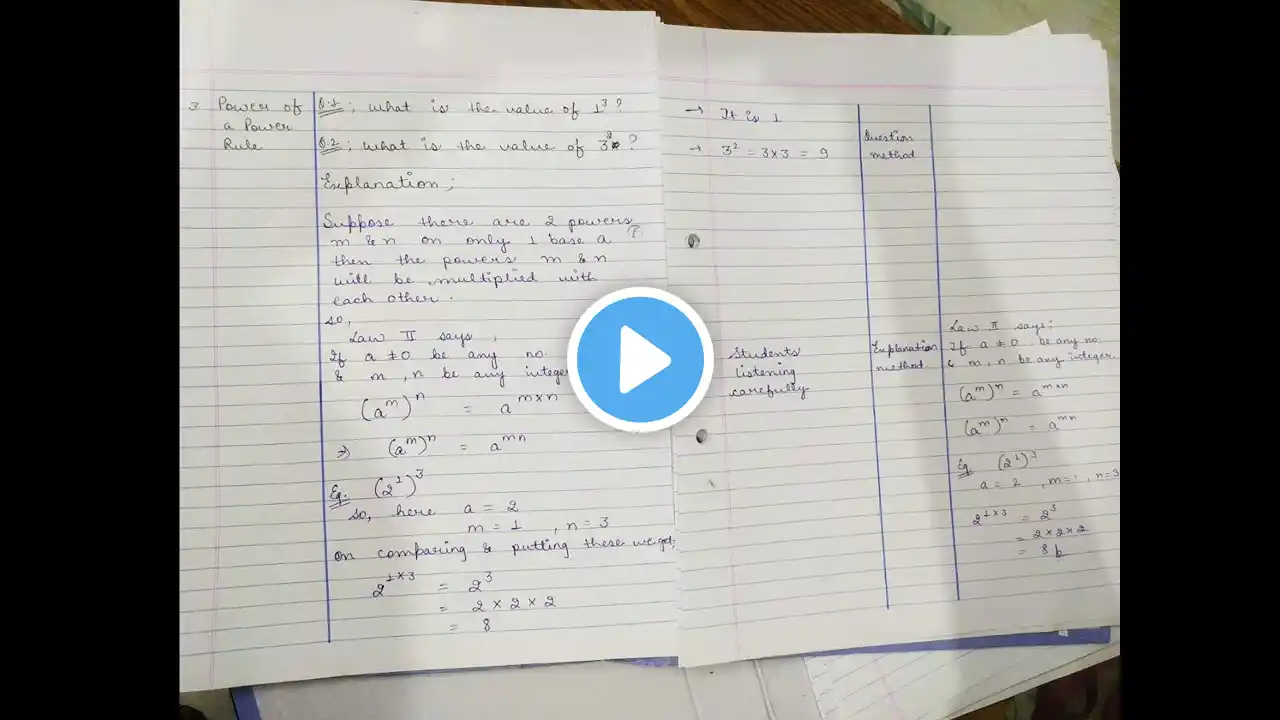 3 Power of
a Power
Rule
Q.1; What is the value of 1³?
Q.2; What is the value of 3²?
Explanation;
Suppose there are 2 powers
m & n on only 1 base a
then the powers m & n
will be multiplied with
each other.
so,
Law II says,
If a ≠ 0 be any no.
& m, n be any integer
(a^m)^n = a^{m×n}
⇒ (a^m)^n = a^{mn}
Eg. (2¹)³
so, here a = 2
m = 1, n = 3
On comparing & putting these we get;
2^{1×3} = 2³
= 2×2×2
= 8
→ It is 1
→ 3² = 3×3 = 9
Students
listening
carefully
Question
method
Explanation
method
Law II says;
If a ≠ 0 be any no.
& m, n be any integer.
(a^m)^n = a^{m×n}
(a^m)^n = a^{mn}
Eg. (2¹)³
a = 2, m=1, n=3
2^{1×3} = 2³
= 2×2×2
= 8